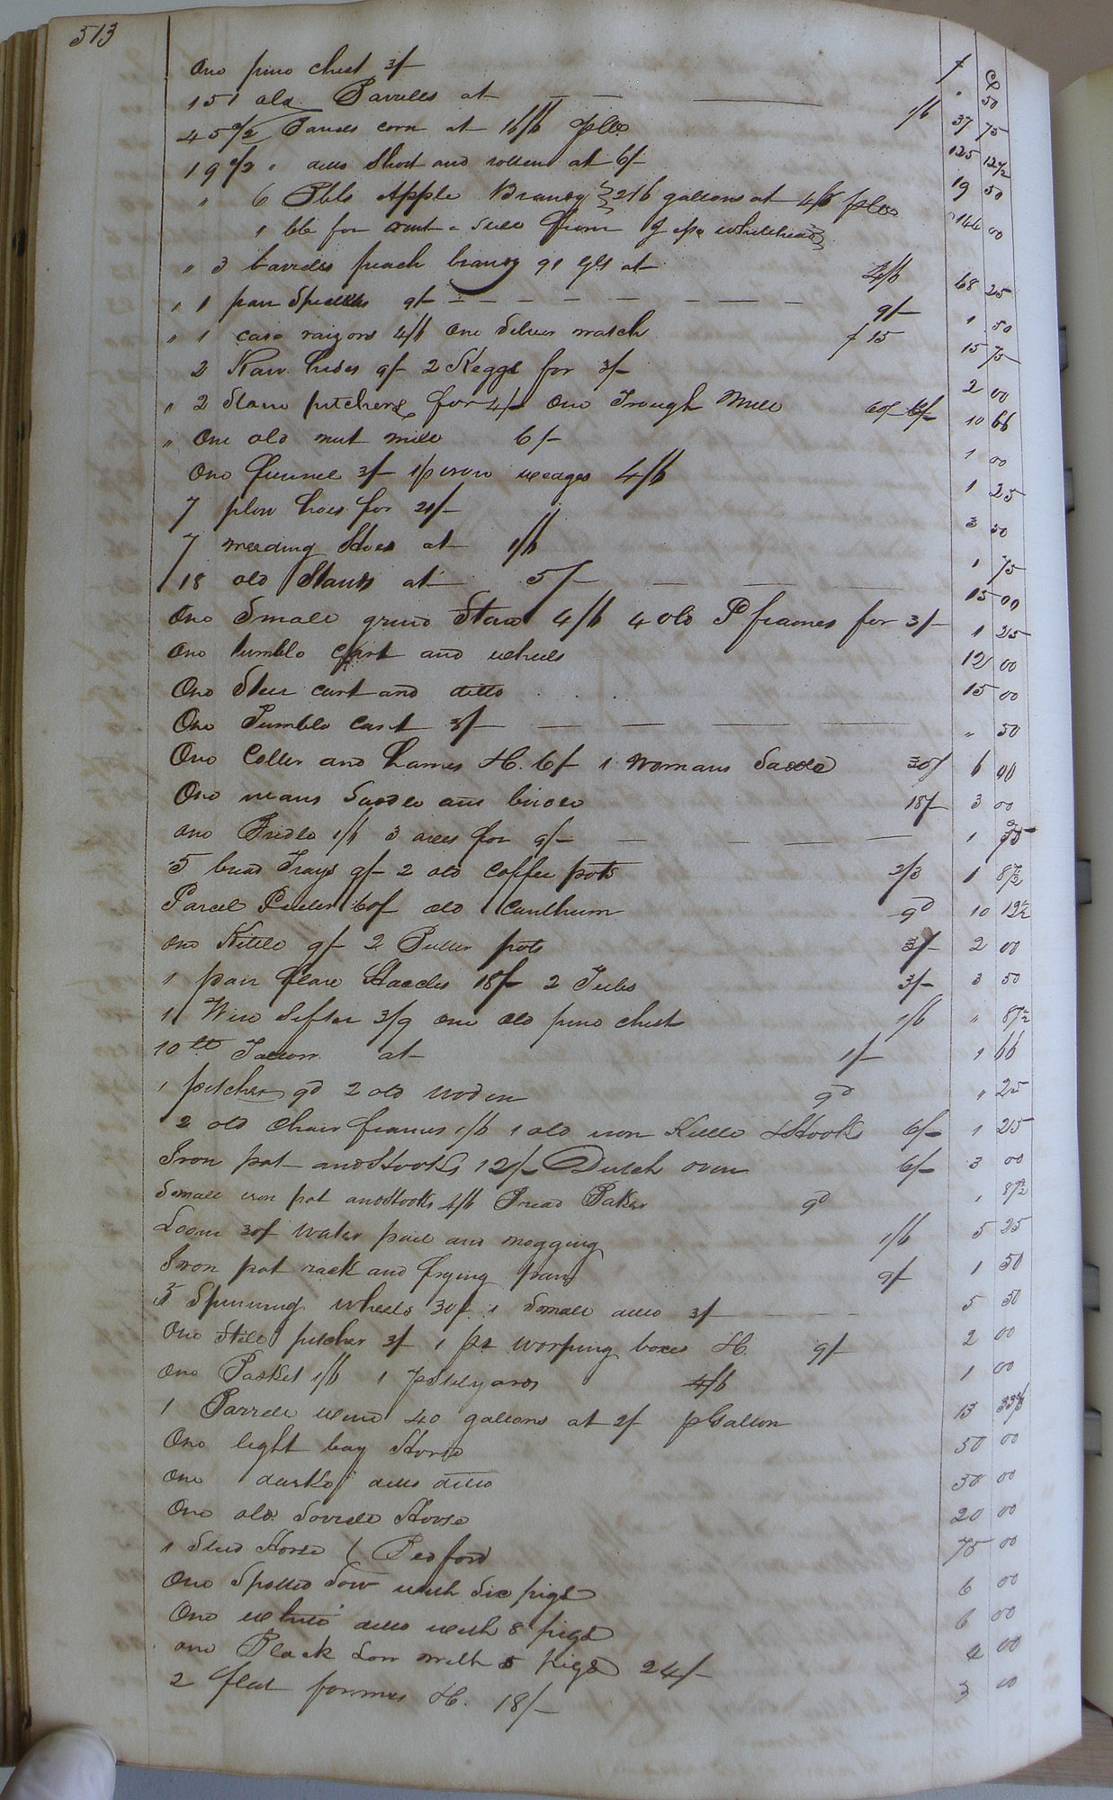 513
$ Cts
One pine chest 3/- " 50
151 old Barrells at 1/6 37 75
45 1/2 Barrels corn at 16/6 pble 125 12 1/2
19 1/2 " ditto Short and rotten at 6/- 19 50
" 6 Bbls Apple Brandy 216 gallons at 4/6 144 00
1 bb for from Whitehead
" 3 barrels peach brandy 91 gls at 4/6 68 25
" 1 pair Specticles 9/- 9/- 1 50
" 1 case raizors 4/6 One Silver watch $15 15 75
2 Raw hides 9/- 2 Keggs for 3/- 2 00
" 2 Stone pitchers for 4/- One Trough Mill 60/- 10 66
" One old nut mill 6/- 1 00
One funnel 3/- iron weages 4/6 1 25
7 plow hoes for 21/- 3 50
7 weading Hoes at 1/6 1 75
18 old Stands at 5/- 15 00
One Small grind Stone 4/6 4 old P frames for 3/- 1 25
One tumble Cart and wheels 12 00
One Steer cart and ditto 15 00
One Tumble cart 3/- " 50
One Coller and hames H. 6/- 1 Womans Saddle 30/ 6 00
One mans Saddle and bridle 18/- 3 00
one Bridle 1/6 3 axes for 9/- 1 75
5 bread Trays 9/- 2 old Coffee pots 2/3 1 87 1/2
Parcel Pewter 60/ old 9d 10 12 1/2
one Kittle 9/- 2 Butter pots 3/- 2 00
1 pair flax Hackles 18/- 2 Tubs 3/- 3 50
1 Wire Sifter 3/9 one old pine chest 1/6 " 87 1/2
10 lb Tallow at 1/- 1 66
1 pitcher 9d 2 old wooden 9d " 25
2 old Chair frames 1/6 1 old iron Kittle & Hooks 6/- 1 25
Iron pot and Hooks 12/- Dutch oven 6/- 3 00
Small iron pot and Hooks 4/6 Bread Baker 9d 1 87 1/2
Loom 30/ water pail and nogging 1/6 5 25
Iron pot rack and frying pan 9/ 1 50
5 Spinning wheels 30/ 1 Small ditto 3/ 5 50
One Still pitcher 3/ 1 pr Worping boxes H. 9/ 2 00
One Basket 1/6 1 4/6 1 00
1 Barrell wine 40 gallons at 2/ p Gallon 13 33 1/3
One light bay Horse 50 00
One darke ditto ditto 50 00
One old Sorrell Horse 20 00
1 Stud Horse Bedford 75 00
One Spotted Sow with Six pigs 6 00
One white ditto with 8 pigs 6 00
one Black Sow with 5 Pigs 24/- 4 00
2 flat H. 18/- 3 00